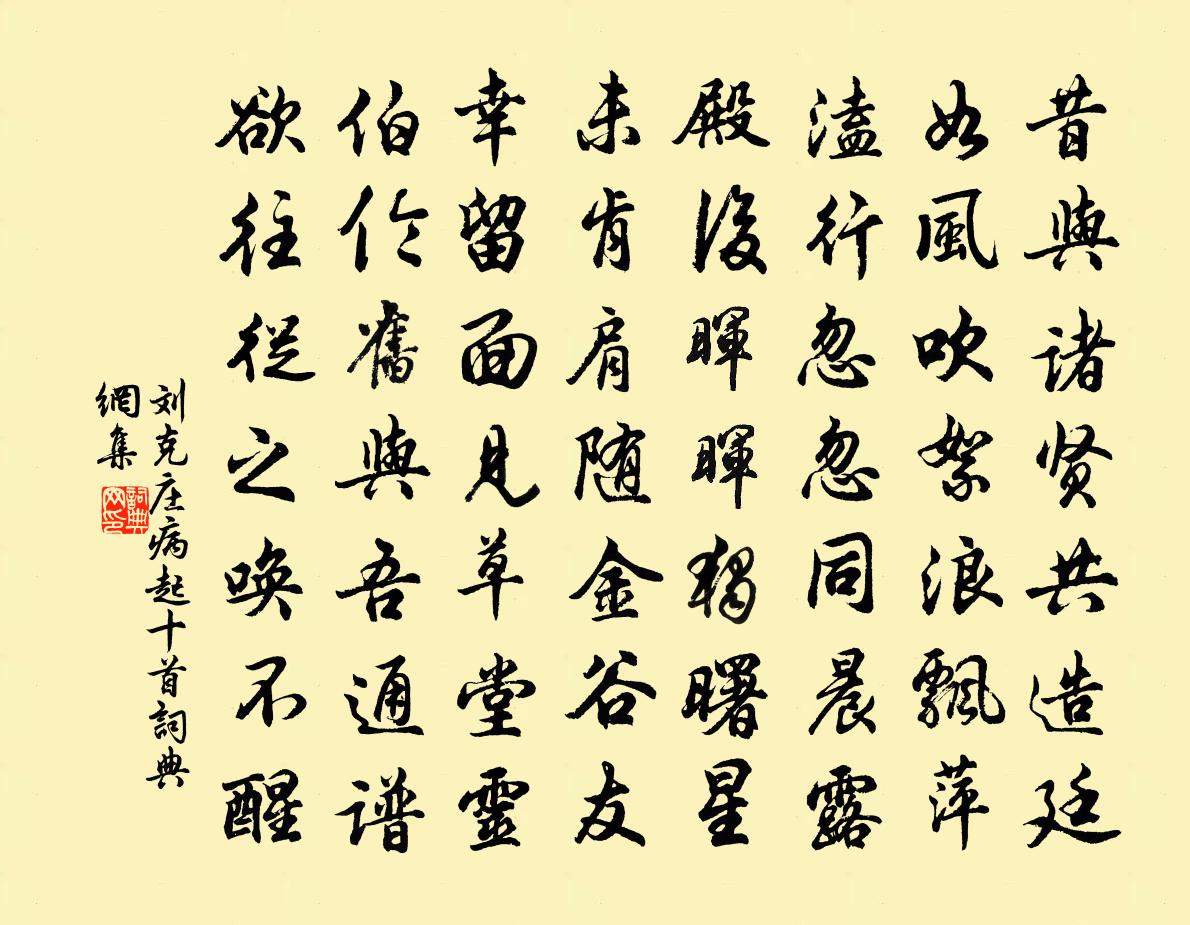 昔與諸贤共造廷
如風吹絮浪飄萍
溘行忽忽同晨露
殿後暉暉獨曙星
未肯肩随金谷友
幸留面見草堂靈
伯伦舊與吾通谱
欲往從之唤不醒
刘克庄病起十首詞典
網集
詞典
网印